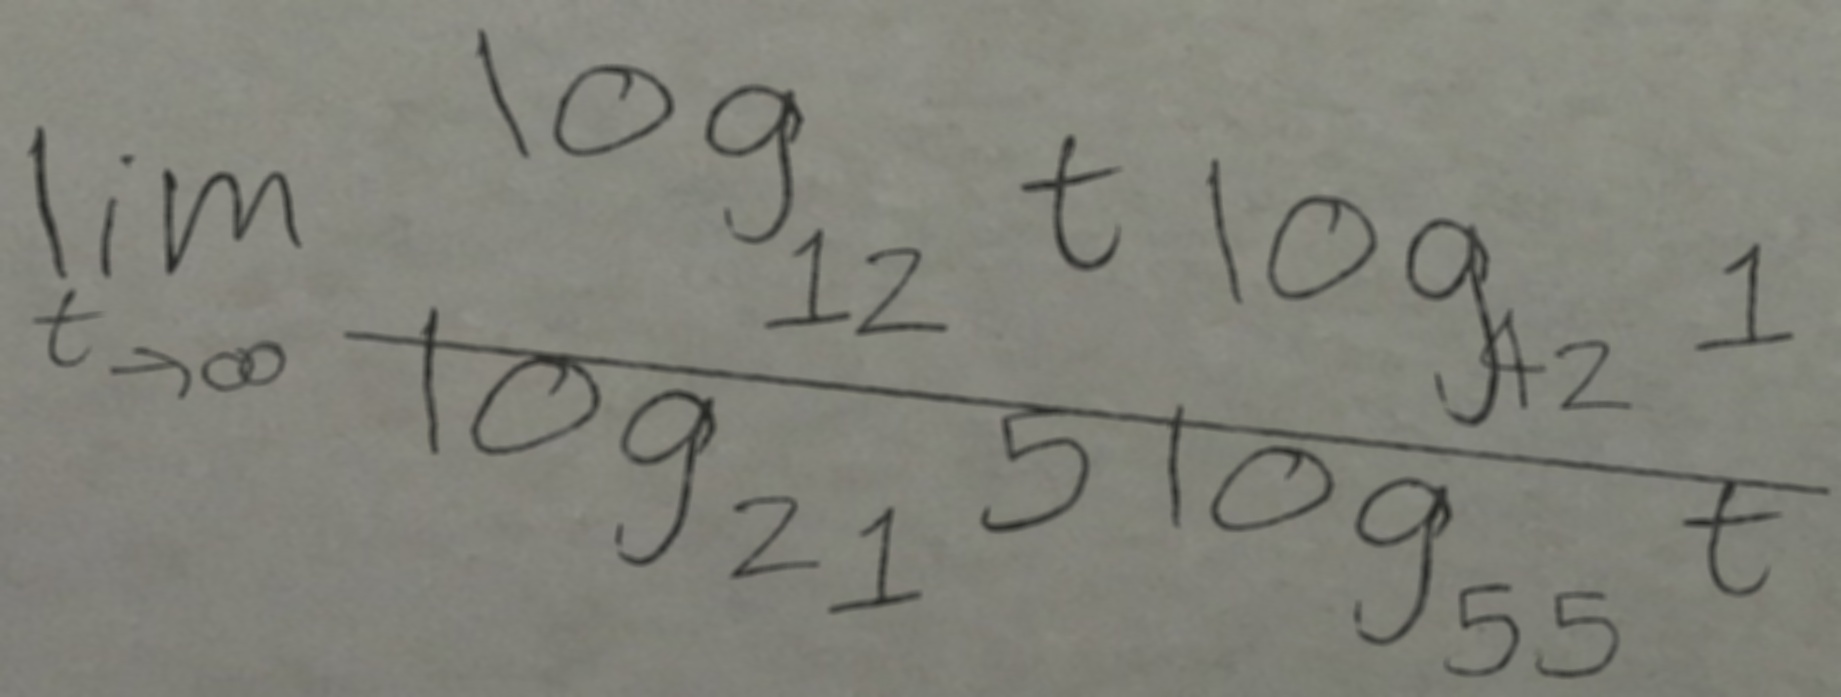 \lim_{t \to \infty} \frac{\log_{12} t \log_{42} 1}{\log_{21} 5 \log_{55} t}